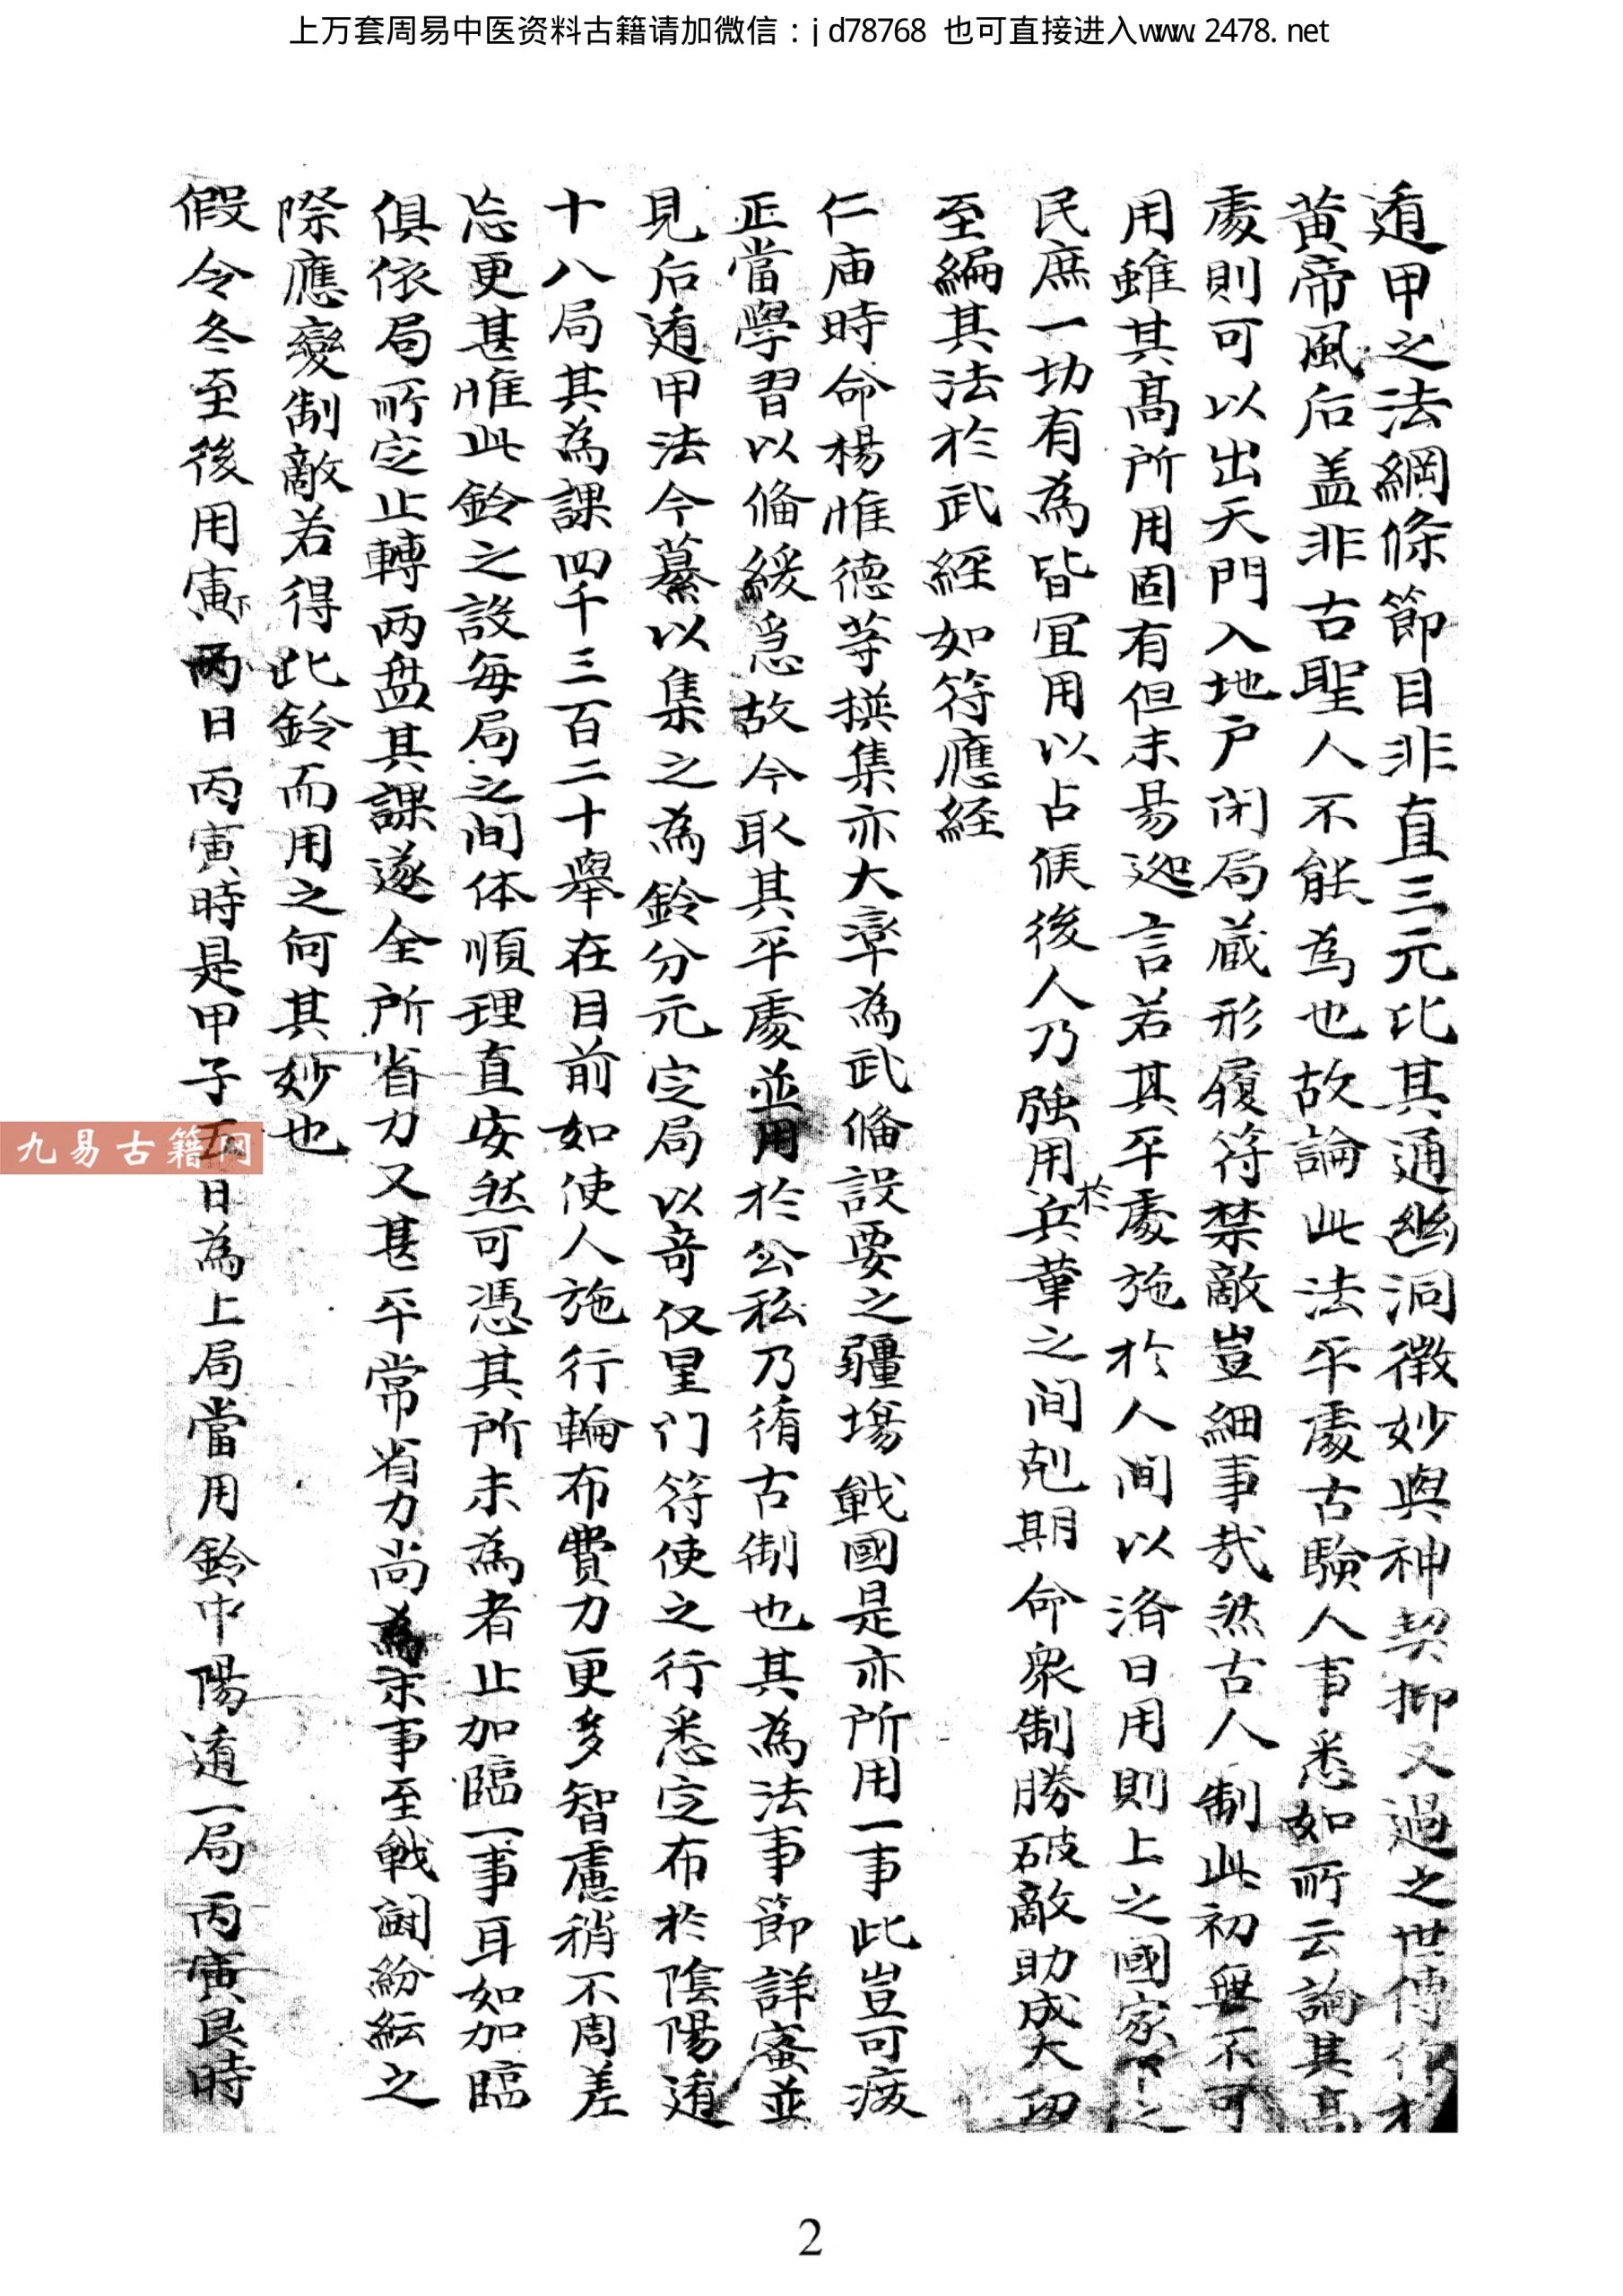 上万套周易中医资料古籍请加微信：jd78768 也可直接进入www.2478.net
遁甲之法綱條節目非直三元比其通幽洞徵妙與神契抑又過之世傳作於
黄帝風后盖非古聖人不能為也故論此法平處古驗人事悉如所云論其高
處則可以出天門入地户闭局蔵形履符禁敵豈細事㢤然古人制此初無不可
用雖其髙所用固有但未易迯言若其平處施於人间以济日用則上之國家下之
民庶一切有為皆宜用以占候後人乃强用於兵革之间尅期命衆制勝破敵助成大功
至編其法於武經如符應経
仁庙時命楊惟德等撰集亦大率為武俻設要之疆場戰國是亦所用一事此豈可疲
正當學習以俻緩急故今取其平處並用於公私乃循古制也其為法事節詳宻並
見后遁甲法今纂以集之為鈴分元定局以竒仪星门符使之行悉定布於陰陽遁
十八局其為課四千三百二十舉在目前如使人施行輪布費力更多智慮稍不周差
忘更甚惟此鈴之設每局之间体順理直安然可憑其所未為者止加臨一事耳如加臨
俱依局所定止轉两盘其課遂全所省力又甚平常省力尚為末事至戰闘紛紜之
際應變制敵若得此鈴而用之何其妙也
假令冬至後用寅下丙日丙寅時是甲子五日為上局當用鈴中陽遁一局丙寅艮時
九易古籍网
2